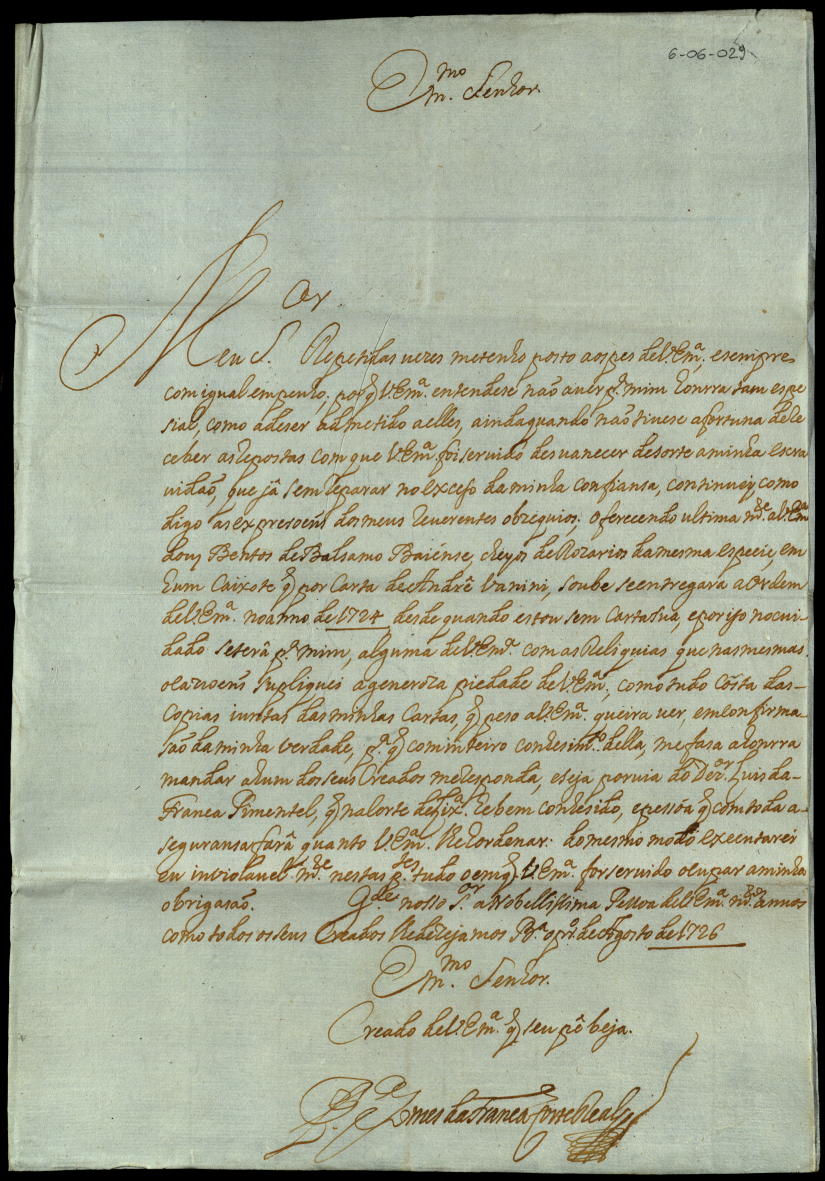 6-06-029
Em.mo Senhor.
Meu S.or Repetidas vezes me tenho posto aos pes de V.Em.a, e sempre
com igual empenho; por q̃ V.Em.a entendese não aver p.a mim honrra tam espe
sial, como a de ser admetido a elles, ainda quando não tivese a fortuna de re
ceber as repostas com que V.Em.a foi servido desvanecer de sorte a minha escra
vidaõ, que já sem reparar no exceso da minha confiansa, continuey, como
digo as expresoens dos meus reverentes obzequios; oferecendo ultima m.te a V.Em.a
dous Bentos de Balsamo Baiense, cheyos de Rozarios da mesma especie, em
hum Caixote q̃ por Carta de Andrê Vanini, soube se entregara a ordem
de V.Em.a no anno de 1724 desde quando estou sem Carta sua, e por iso no cui-
dado se terâ p.a mim, alguma de V.Em.a com as Reliquias que nas mesmas
ocazioens supliquei a generoza piedade de V.Em.a, como tudo cõsta das-
Copias juntas das minhas Cartas, q̃ peso a V.Em.a queira ver, em confirma-
saõ da minha verdade, p.a q̃ com inteiro conhesim.to della, me fasa a honrra
mandar a hum dos seus Creados me responda, e seja por via do Dez.or Luis da-
Franca Pimentel, q̃ na Corte de Lix.a he bem conhesido, e pessoa q̃ com toda a-
seguransa farâ quanto V.Em.a lhe ordenar: do mesmo modo executarei
eu inviolavel m.te nestas p.tes tudo o em q̃ V.Em.a for servido ocupar a minha
obrigasaõ. G.de nosso S.or a Nobellissima Pessoa de V.Em.a m.s annos
como todos os seus Creados lhe dezejamos B.a o pr.o de Agosto de 1726
Em.mo Senhor.
Creado de V.Em.a q̃ seu pê beja.
da Franca Corte Real